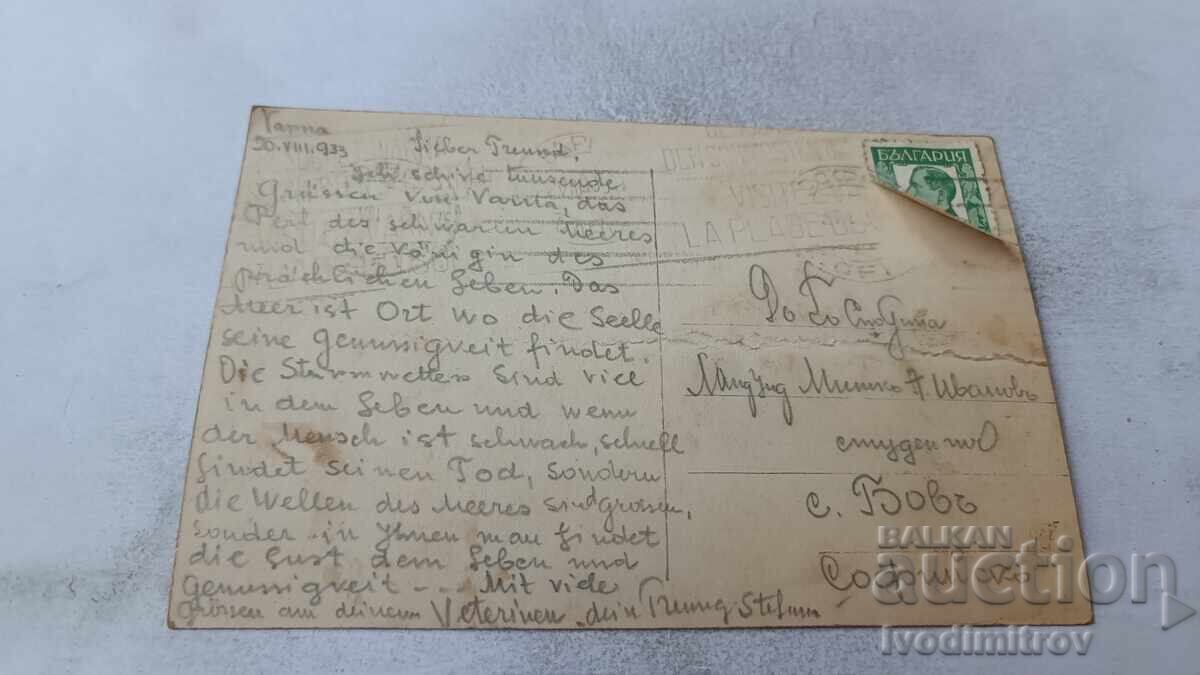 Varna
20.VIII.933
Lieber Freund,
Ich schike tausende
Grüssen von Varna, das
Perl des schwarzen Meeres
und die königin des
prächlichen Leben. Das
Meer ist Ort wo die Seelle
seine genussigkeit findet.
Die Sturmwetter sind viel
in dem Leben und wenn
der Mensch ist schwach, schnell
findet seinen Tod, sondern
die Wellen des Meeres sind grossen,
sonder in Ihnen man findet
die Lust dem Leben und
genussigkeit -- Mit viele
grüssen am deinem Veterinen. dein Freund Stefan
БЪЛГАРИЯ
VISITEZ
LA PLAGE DE
До Господина
Минко Ивановъ
студентъ
с. Бовъ
Софийско
BALKAN
auction
Ivodimitrov